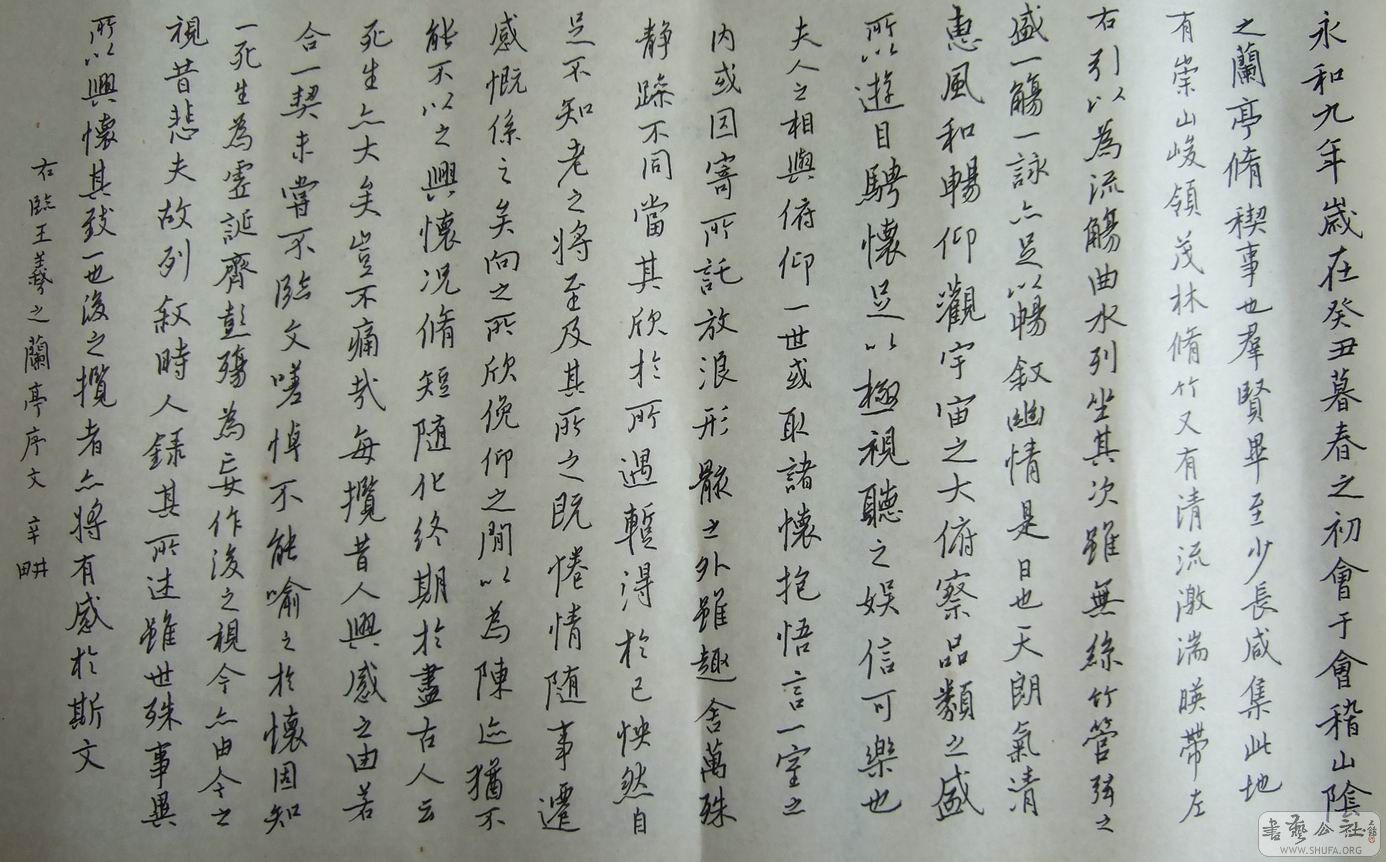 永和九年歲在癸丑暮春之初會于會稽山陰
之蘭亭脩稧事也羣賢畢至少長咸集此地
有崇山峻領茂林脩竹又有清流激湍暎帶左
右引以為流觴曲水列坐其次雖無絲竹管弦之
盛一觴一詠亦足以暢敘幽情是日也天朗氣清
惠風和暢仰觀宇宙之大俯察品類之盛
所以遊目騁懷足以極視聽之娛信可樂也
夫人之相與俯仰一世或取諸懷抱悟言一室之
內或因寄所託放浪形骸之外雖趣舍萬殊
靜躁不同當其欣於所遇蹔得於己怏然自
足不知老之將至及其所之既惓情隨事遷
感慨係之矣向之所欣俛仰之閒以為陳迹猶不
能不以之興懷況脩短隨化終期於盡古人云
死生亦大矣豈不痛哉每攬昔人興感之由若
合一契未嘗不臨文嗟悼不能喻之於懷固知
一死生為虛誕齊彭殤為妄作後之視今亦由今之
視昔悲夫故列敘時人錄其所述雖世殊事異
所以興懷其致一也後之攬者亦將有感於斯文
右臨王羲之蘭亭序文 辛畊
書藝公社
WWW.SHUFA.ORG